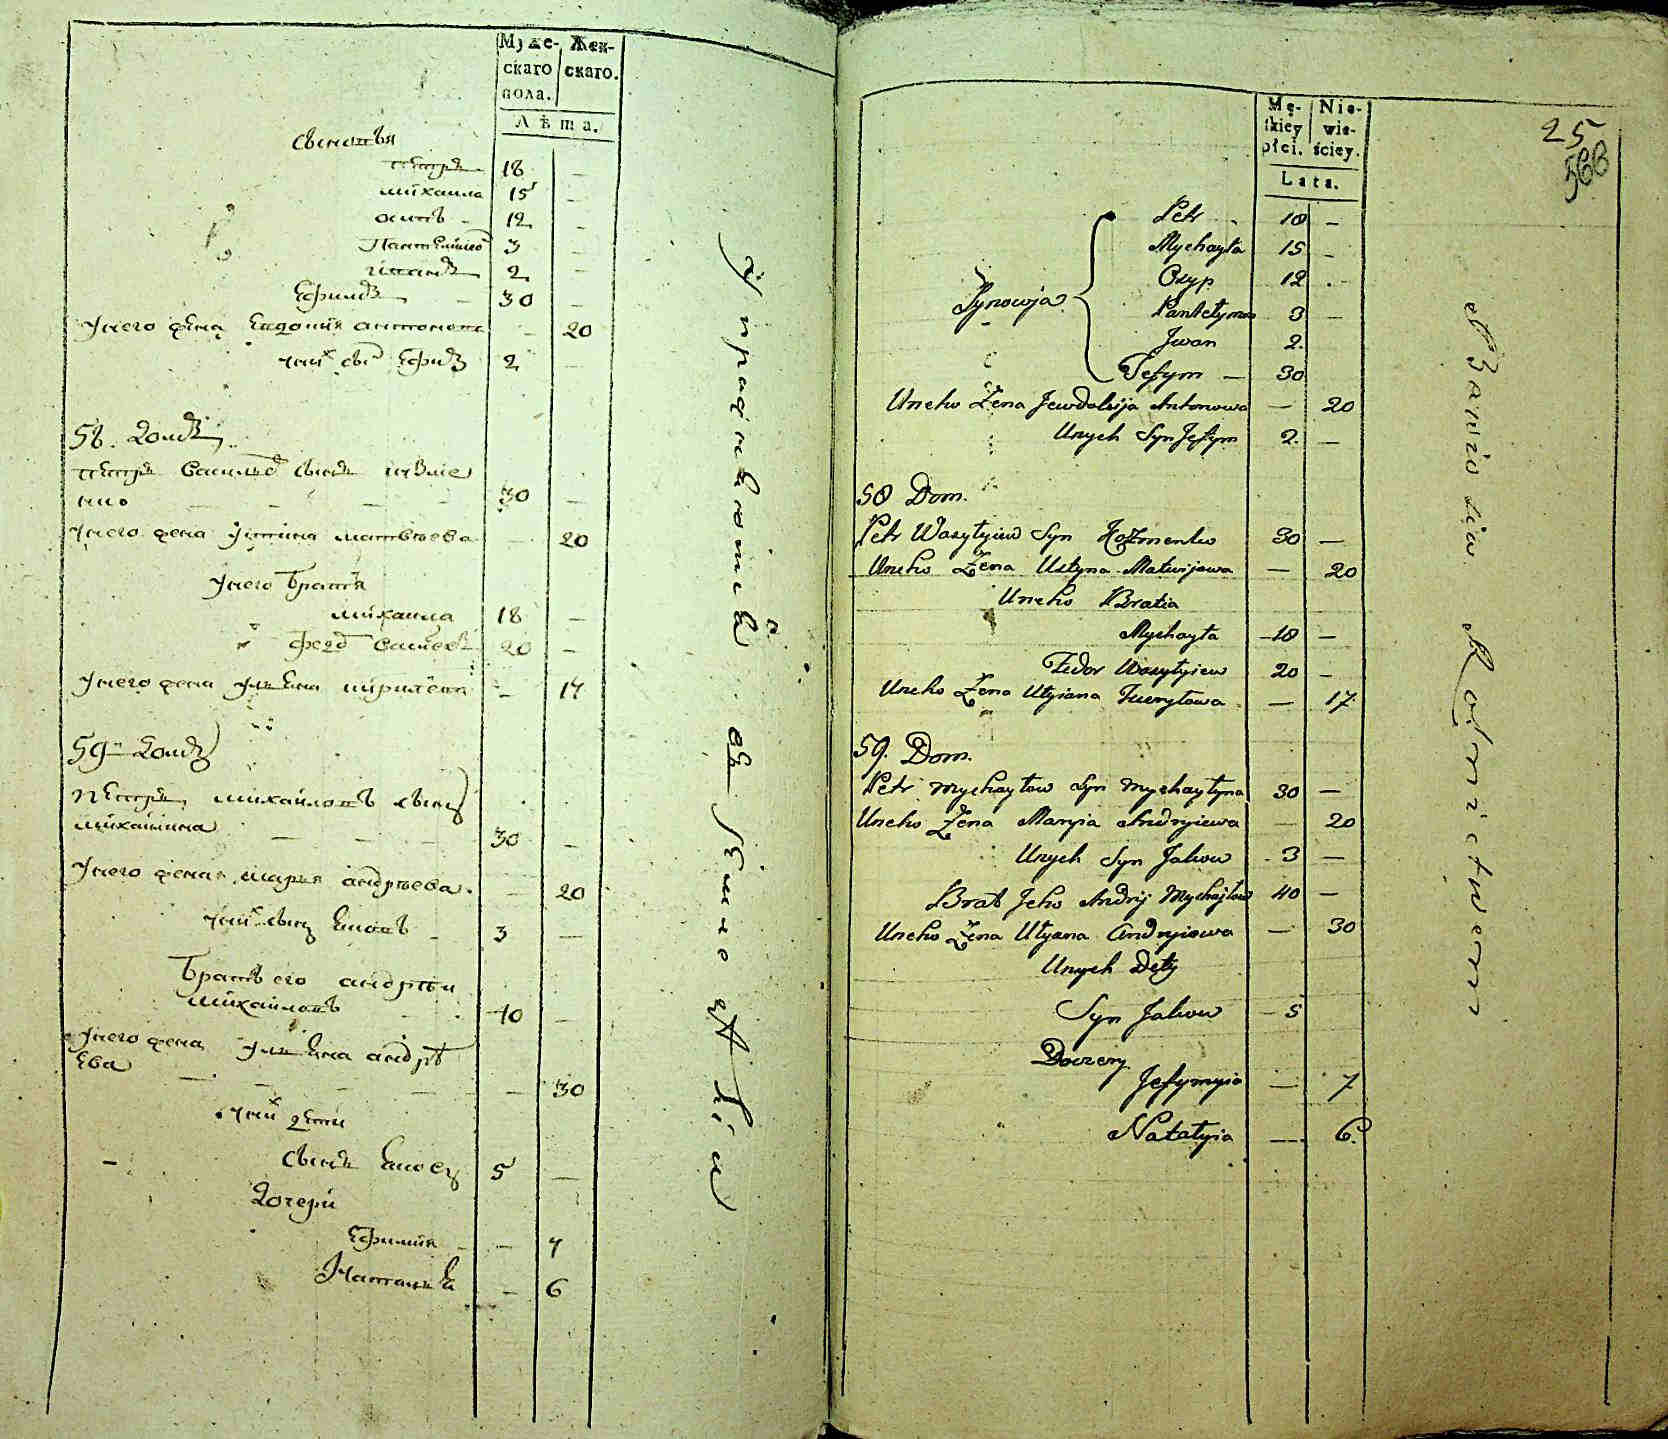 Муже- Жен-
скаго скаго.
пола.
Лѣта.
сыновья
петръ 18 —
михаила 15 —
осипъ 12 —
Пантелимо 3 —
иванъ 2 —
Ефимъ 30 —
унего жена Евдокия антонова — 20
ихъ сынъ Ефимъ 2 —
58. Домъ
петръ Василиевъ сынъ 30 —
унего жена Устина матвѣева — 20
унего братя
михаила 18 —
федоръ 20 —
унего жена Ульяна — 17
59 Домъ
Петръ михайловъ сынъ
михайлина 30 —
унего жена марья андрѣева — 20
сынъ яковъ 3 —
Братъ его андрѣи
михайловъ 40 —
унего жена Ульяна андрѣ
ева — 30
дети
сынъ яковъ 5 —
Дочери
Ефимия — 7
Наталья — 6
упражнѣютца въ земледѣлии
25
566
Mę- Nie-
skiey wie-
płci. ściey.
Lata.
Petr 18 —
Mychayła 15 —
Osyp 12 —
Synowja Pantełymon 3 —
Jwan 2
Jefym — 30
Uneho Żena Jewdokija Antonowa — 20
Unych Syn Jefym 2 —
58 Dom.
Petr Wasyłyiew Syn Kozmenko 30 —
Uneho Żena Ustyna Matwijowa — 20
Uneho Bratia
Mychayła 18 —
Fedor Wasyłyiew 20 —
Uneho Żena Ulyiana Kuryłowa — 17
59. Dom.
Petr Mychayłow Syn Mychayłyna 30 —
Uneho Żena Maryia Andryiewa — 20
Unych Syn Jakow 3 —
Brat Jeho Andrij Mychajłow 40 —
Uneho Żena Ulyana Andryiowa — 30
Unych Dety
Syn Jakow — 5
Doczery
Jefymyia — 7
Natałyia — 6
Bawio sie Rolnictwem